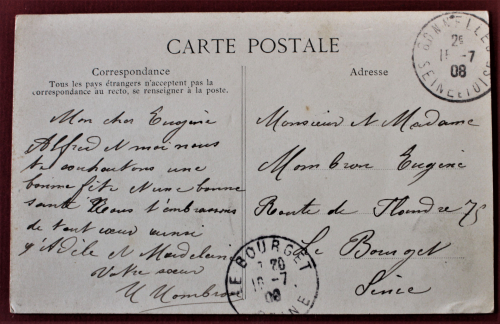 CARTE POSTALE
Correspondance
Tous les pays étrangers n'acceptent pas la
correspondance au recto, se renseigner à la poste.
Mon cher Eugène
Alfred et moi nous
te souhaitons une
bonne fête et une bonne
santé Nous t'embrassons
de tout cœur ainsi
q'Adèle et Madelain
Votre sœur
Mombron
Adresse
Monsieur et Madame
Mombron Eugène
Route de Flandre 75
Le Bourget
Seine
BONNELLES
18 -7
08
SEINE ET OISE
LE BOURGET
18 -7
08
SEINE